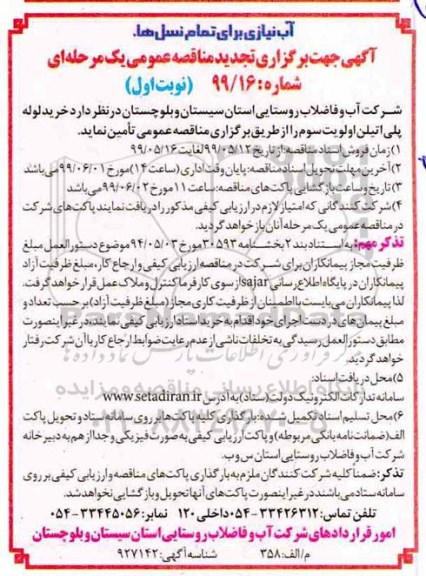 آب نیازی برای تمام نسل‌ها.
آگهی جهت برگزاری تجدید مناقصه عمومی یک مرحله‌ای
شماره: ۹۹/۱۶ (نوبت اول)
شرکت آب و فاضلاب روستایی استان سیستان و بلوچستان در نظر دارد خرید لوله
پلی اتیلن اولویت سوم را از طریق برگزاری مناقصه عمومی تأمین نماید.
۱) زمان فروش اسناد مناقصه: از تاریخ ۹۹/۰۵/۱۲ لغایت ۹۹/۰۵/۱۶
۲) آخرین مهلت تحویل اسناد مناقصه: پایان وقت اداری (ساعت ۱۴) مورخ ۹۹/۰۶/۰۱ می باشد
۳) تاریخ و ساعت بازگشایی پاکت‌های مناقصه: ساعت ۱۱ مورخ ۹۹/۰۶/۰۲ می باشد
۴) شرکت کنندگانی که امتیاز لازم در ارزیابی کیفی مذکور را دریافت نمایند پاکت‌های شرکت
در مناقصه عمومی یک مرحله آنان باز خواهد گردید.
تذکر مهم: به استناد بند ۲ بخشنامه ۳۰۵۹۳ مورخ ۹۴/۰۵/۰۳ موضوع دستورالعمل مبلغ
ظرفیت مجاز پیمانکاران برای شرکت در مناقصه ارزیابی کیفی و ارجاع کار، مبلغ ظرفیت آزاد
پیمانکاران در پایگاه اطلاع رسانی sajar از سوی کارفرما کنترل و ملاک عمل قرار خواهد گرفت.
لذا پیمانکاران می بایست با اطمینان از ظرفیت کاری مجاز (مبلغ ظرفیت آزاد) بر حسب تعداد و
مبلغ پیمان های در دست اجرای خود اقدام به خرید اسناد ارزیابی کیفی نمایند، در غیر اینصورت
مطابق دستورالعمل رسیدگی به تخلفات ناشی از عدم رعایت ضوابط ارجاع کار با آن شرکت رفتار
خواهد گردید.
۵) محل دریافت اسناد:
سامانه تدارکات الکترونیک دولت (ستاد) به آدرس www.setadiran.ir
۶) محل تسلیم اسناد تکمیل شده: بارگذاری کلیه پاکت‌ها بر روی سامانه ستاد و تحویل پاکت
الف (ضمانت نامه بانکی مربوطه) و پاکت ارزیابی کیفی به صورت فیزیکی و جدا از هم به دبیرخانه
شرکت آب و فاضلاب روستایی استان س و ب.
تذکر: ضمناً کلیه شرکت کنندگان ملزم به بارگذاری پاکت‌های مناقصه و ارزیابی کیفی بر روی
سامانه ستاد می باشند در غیر اینصورت پاکت‌های آنها تحویل و بازگشایی نخواهد شد.
تلفن تماس: ۳۳۴۲۶۳۱۲-۰۵۴ داخلی ۱۲۰ نمابر: ۳۳۴۴۵۰۵۶-۰۵۴
امور قراردادهای شرکت آب و فاضلاب روستایی استان سیستان و بلوچستان
م/الف: ۳۵۸ شناسه آگهی: ۹۲۷۱۴۲